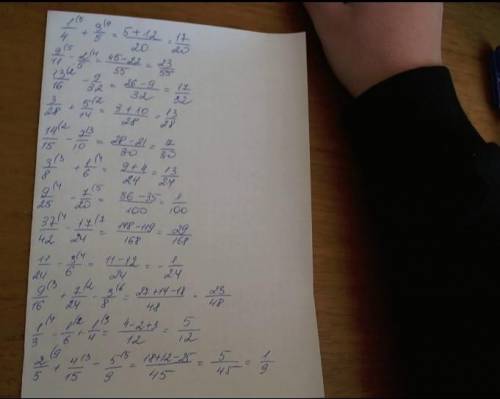 1/4 (5 + 3/5 (4 = 5+12/20 = 17/20
9/11 (5 - 2/5 (11 = 45-22/55 = 23/55
13/16 (2 - 9/32 = 26-9/32 = 17/32
3/28 + 5/14 (2 = 3+10/28 = 13/28
14/15 (2 - 7/10 (3 = 28-21/30 = 7/30
3/8 (3 + 1/6 (4 = 9+4/24 = 13/24
9/25 (4 - 7/20 (5 = 36-35/100 = 1/100
37/42 (4 - 17/24 (7 = 148-119/168 = 29/168
11/24 - 3/6 (4 = 11-12/24 = - 1/24
9/16 (3 + 7/24 (2 - 3/8 (6 = 27+14-18/48 = 23/48
1/3 (4 - 1/6 (2 + 1/4 (3 = 4-2+3/12 = 5/12
2/5 (9 + 4/15 (3 - 5/9 (5 = 18+12-25/45 = 5/45 = 1/9